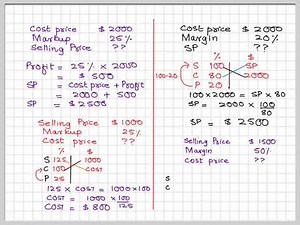 Cost price $ 2000
Markup 25%
Selling Price ??
Profit = 25% × 2000
= $ 500
SP = Cost price + Profit
= 2000 + 500
SP = $ 2500
Selling Price $ 1000
Markup 25%
Cost price ??
% $
S 125 1000
C 100 COST
P 25
125 × COST = 1000 × 100
COST = 1000 × 100/125
COST = $ 800
Cost price $ 2000
Margin 20%
SP ??
% $
S 100 SP
100-20 C 80 2000
P 20
100 × 2000 = SP × 80
SP = 2000 × 100/80
SP = $ 2500
Selling Price $ 1500
Margin 50%
Cost price ??
S
C